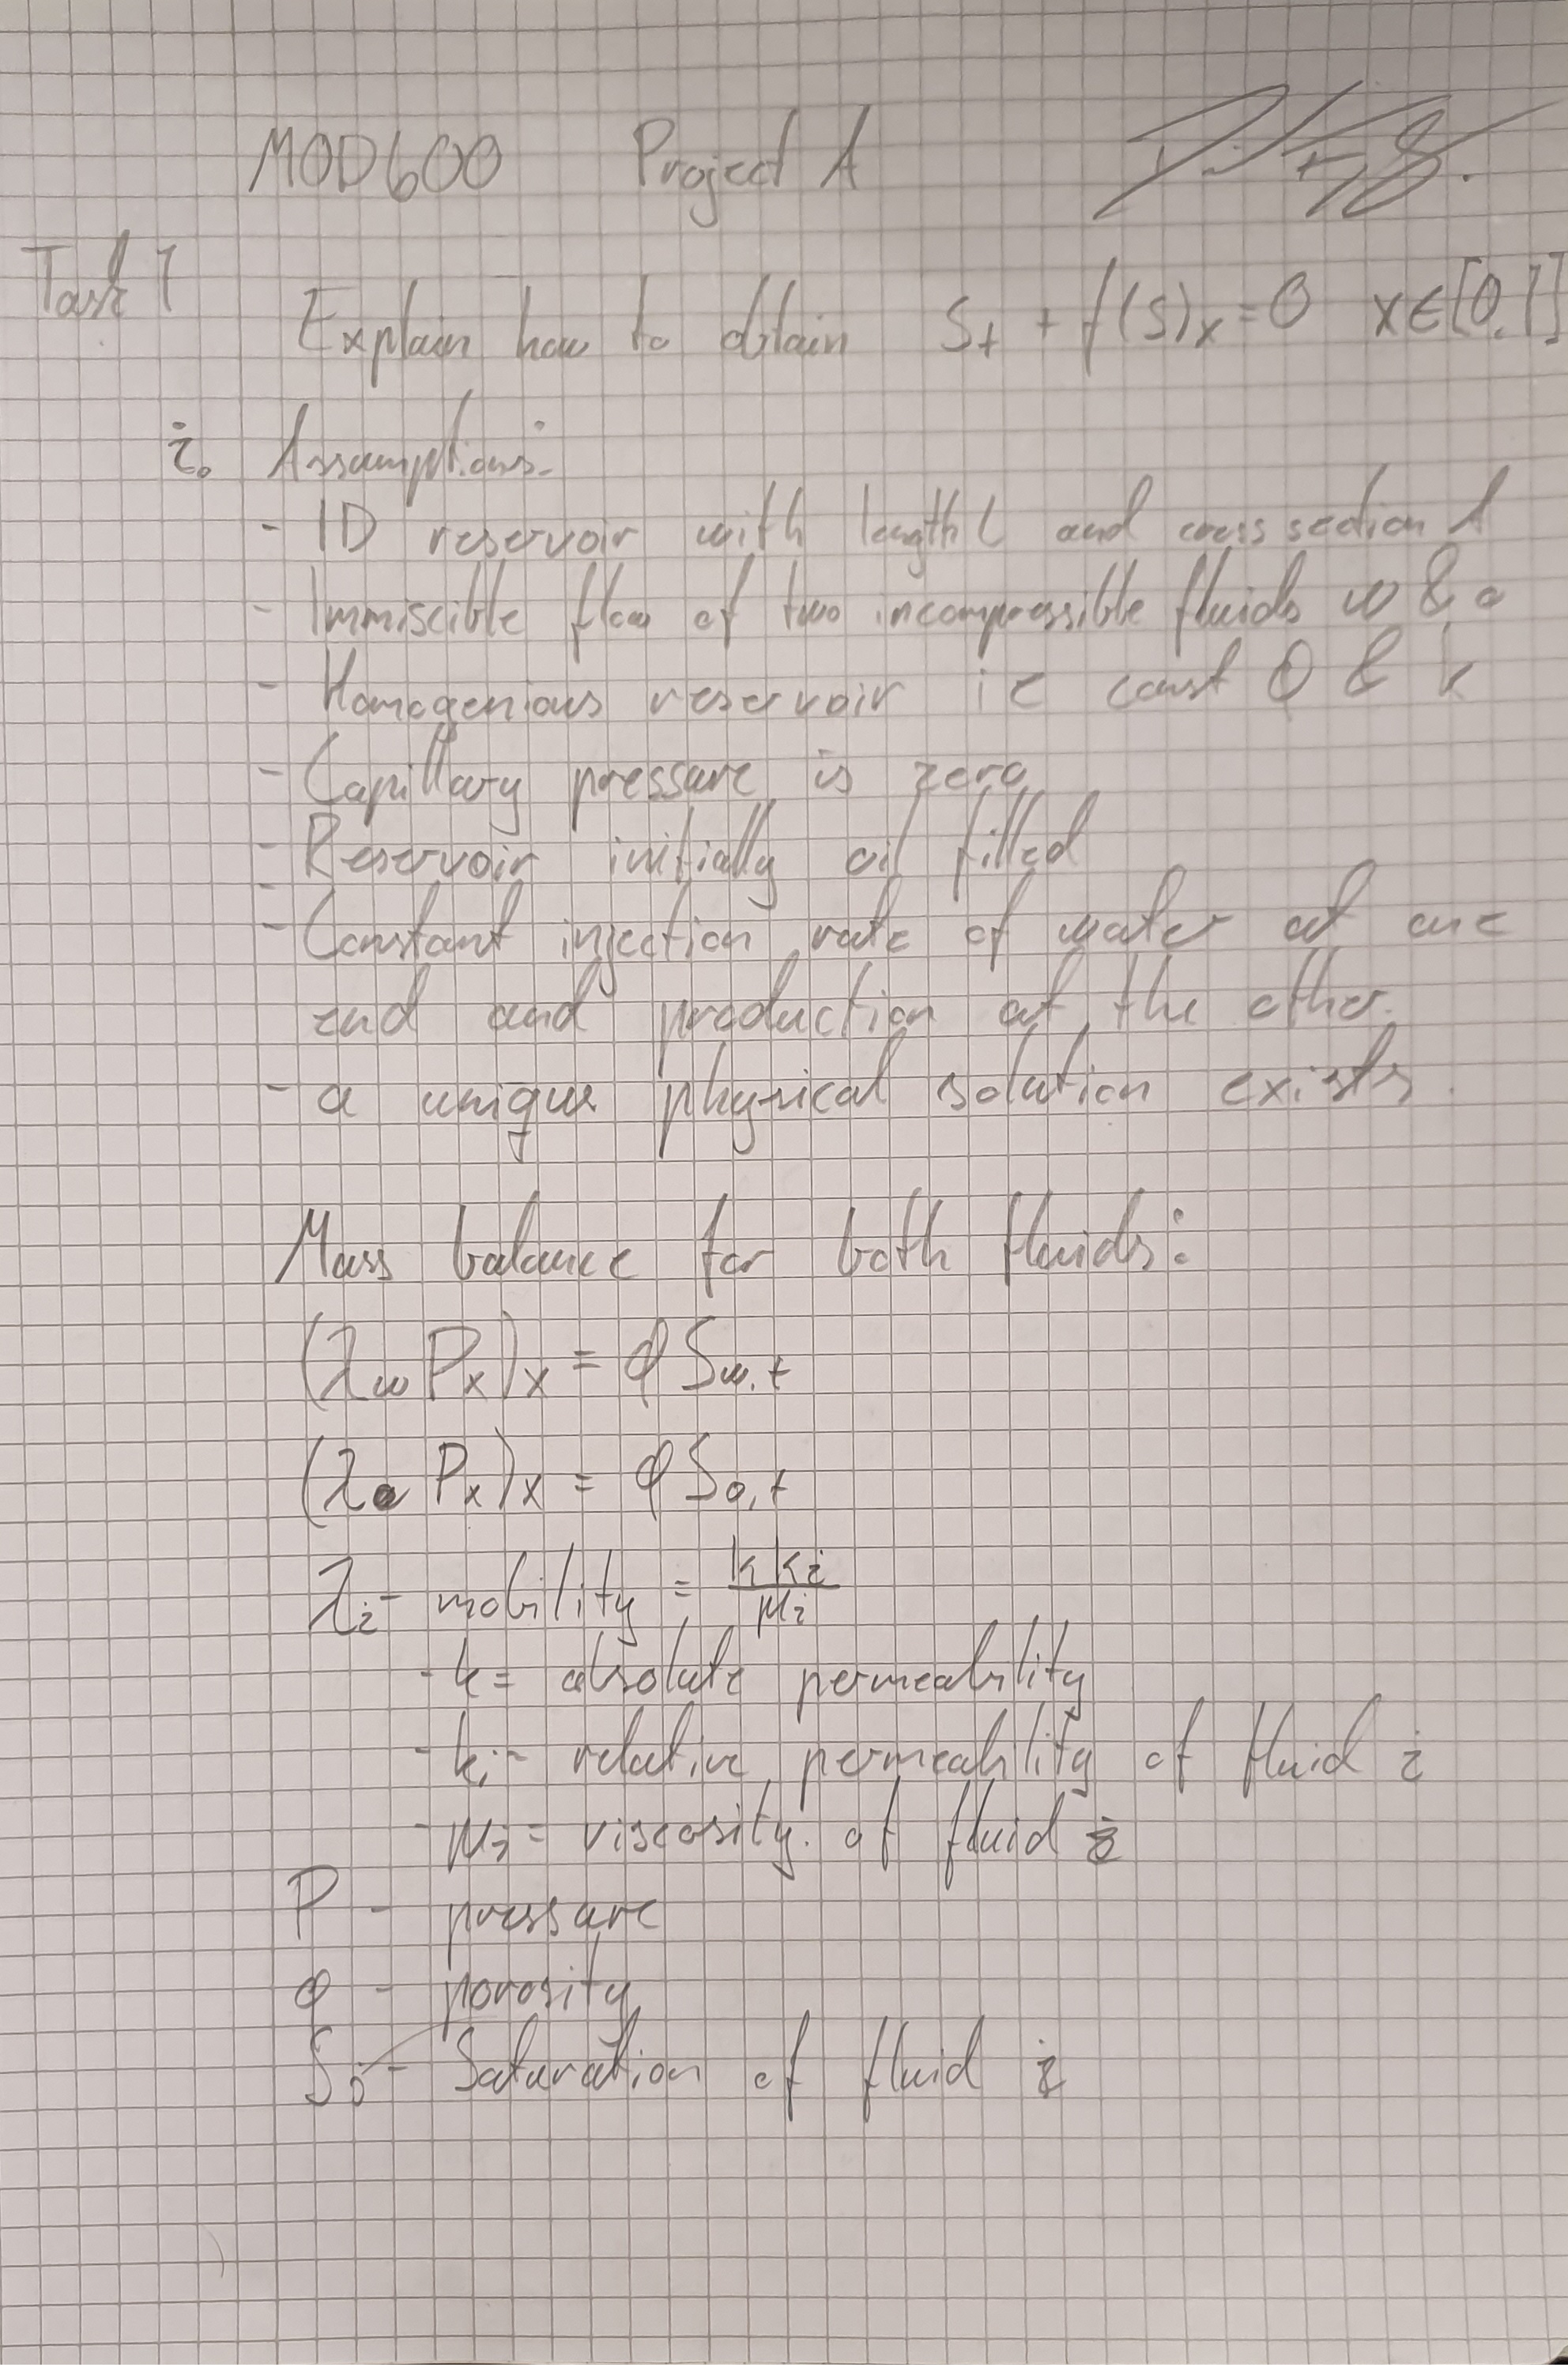 MOD600 Project A
Task 1
Explain how to obtain S_t + f(S)_x = 0 x ∈ [0,1]
i. Assumptions:
- 1D reservoir with length L and cross section A
- Immiscible flow of two incompressible fluids w & o
- Homogenious reservoir ie const ϕ & k
- Capillary pressure is zero
- Reservoir initially oil filled
- Constant injection rate of water at one
end and production at the other.
- a unique physical solution exists.
Mass balance for both fluids:
(λ_w P_x)_x = ϕ S_w,t
(λ_o P_x)_x = ϕ S_o,t
λ_i - mobility = k k_i / μ_i
- k = absolute permeability
- k_i - relative permeability of fluid i
- μ_i = viscosity. of fluid i
P - pressure
ϕ - porosity
S_i - Saturation of fluid i